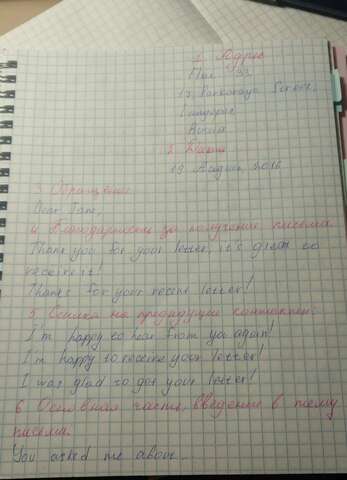 1. Адрес
Flat 93
13, Parkovaya Street,
Russia
2. Дата
19 August 2016
3. Обращение
Dear Jane,
4. Благодарность за получение письма
Thank you for your letter, it's great to
receive it!
Thanks for your recent letter!
5. Ссылка на предыдущие контакты:
I'm happy to hear from you again!
I'm happy to receive your letter!
I was glad to get your letter!
6. Основная часть, введение в тему
письма.
You asked me about...